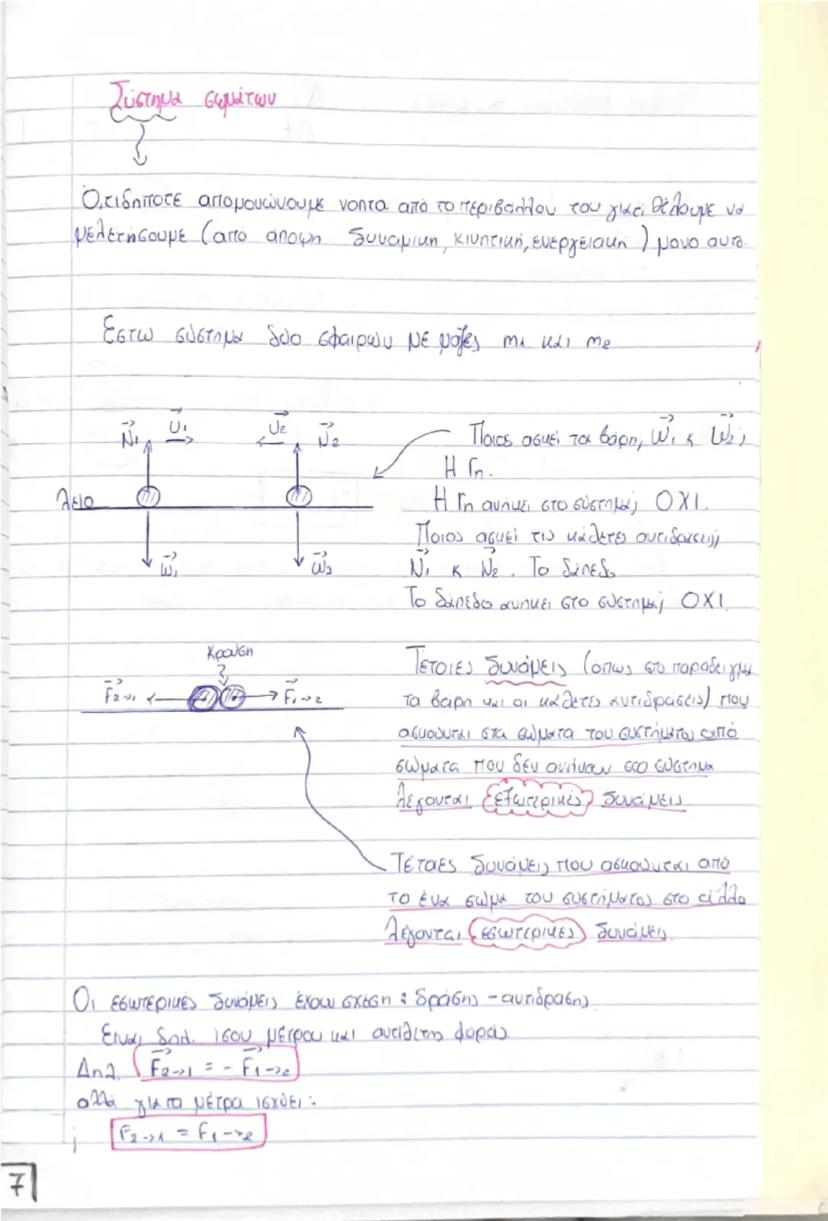 Σύστημα σωμάτων
Ο,τιδηποτε απομονώνουμε νοητα από το περιβαλλον του γιατι θέλουμε να
μελετήσουμε (από άποψη δυναμικη, κινητική, ενεργειακη) μονο αυτο.
Εστω σύστημα δυο σφαιρων με μαζες m1 και m2
N⃗1 υ⃗1 υ⃗2 N⃗2
λειο
w⃗1 w⃗2
Ποιος ασκει τα βάρη, w⃗1 κ w⃗2;
Η Γη.
Η Γη ανηκει στο σύστημα; ΟΧΙ.
Ποιος ασκεί τις κάθετες αντιδρασεις;
N⃗1 κ N⃗2. Το δάπεδο
Το δάπεδο ανήκει στο συστημα; ΟΧΙ.
Κρουση
F⃗2→1 F⃗1→2
Τέτοιες δυνάμεις (οπως στο παραδειγμα
τα βαρη και οι κάθετες αντιδράσεις) που
ασκουνται στα σώματα του συστήματος από
σώματα που δεν ανηκουν στο σύστημα
λέγονται εξωτερικές δυνάμεις.
Τέτοιες δυνάμεις που ασκουνται από
το ένα σώμα του συστήματος στο άλλο
λέγονται εσωτερικές δυνάμεις.
Οι εσωτερικές δυνάμεις έχουν σχέση: δράσης - αντιδρασης
Ειναι δηλ. ίσου μέτρου και αντίθετης φοράς.
Δηλ. F⃗2→1 = - F⃗1→2
αλλά για τα μέτρα ισχύει:
F2→1 = F1→2
7